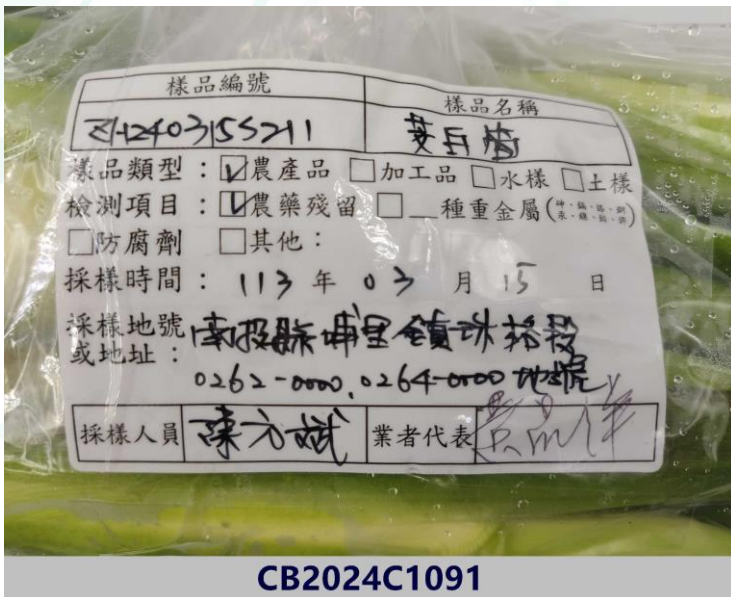 樣品編號 樣品名稱
ZH240315S211 茭白筍
樣品類型：☑農產品 □加工品 □水樣 □土樣
檢測項目：☑農藥殘留 □__種重金屬(砷、鎘、鉻、銅、汞、鎳、鉛、鋅)
□防腐劑 □其他：
採樣時間：113年03月15日
採樣地號 南投縣埔里鎮珠格段
或地址：0262-0000、0264-0000地號
採樣人員 陳 業者代表 黃
CB2024C1091